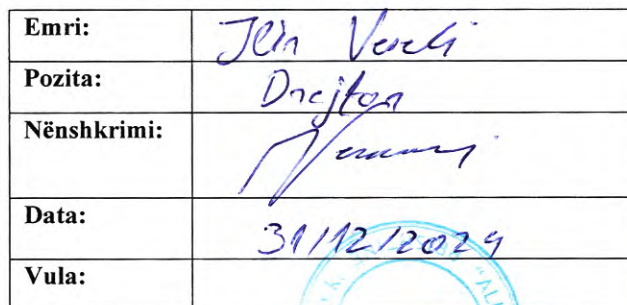 Emri: Ilir
Pozita: Drejtor
Nënshkrimi:
Data: 31/12/2024
Vula: